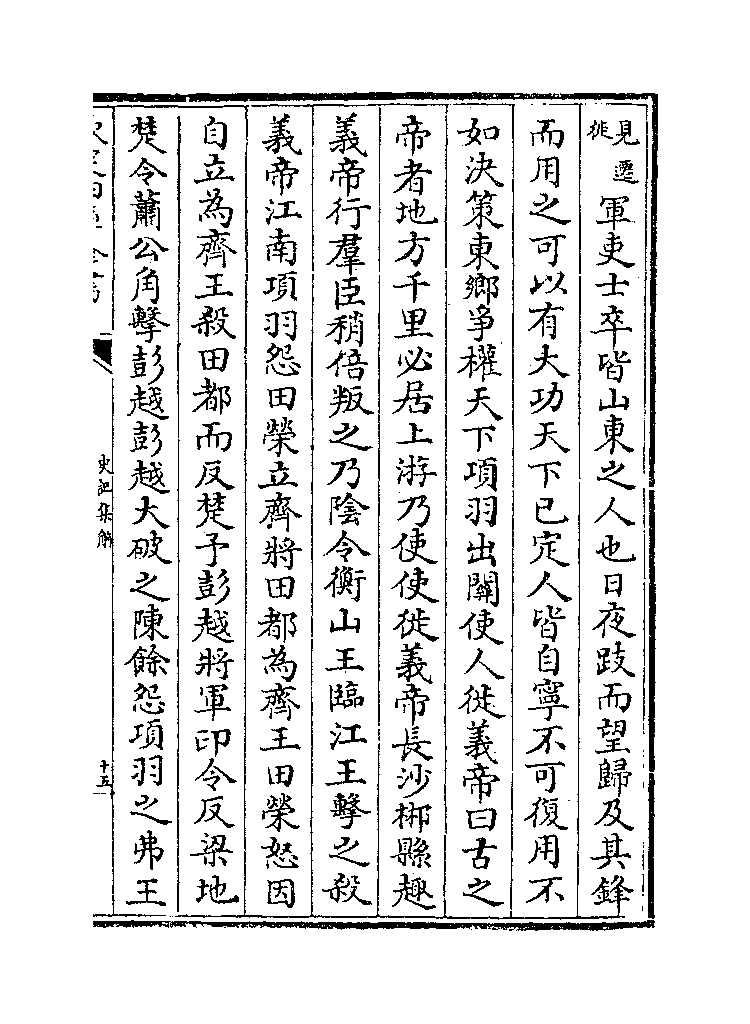 見遷
徙
軍吏士卒皆山東之人也日夜跂而望歸及其鋒
而用之可以有大功天下已定人皆自寧不可復用不
如決策東鄉爭權天下項羽出關使人徙義帝曰古之
帝者地方千里必居上游乃使使徙義帝長沙郴縣趣
義帝行羣臣稍倍叛之乃陰令衡山王臨江王擊之殺
義帝江南項羽怨田榮立齊將田都為齊王田榮怒因
自立為齊王殺田都而反楚予彭越將軍印令反梁地
楚令蕭公角擊彭越彭越大破之陳餘怨項羽之弗王
史記集解
十五